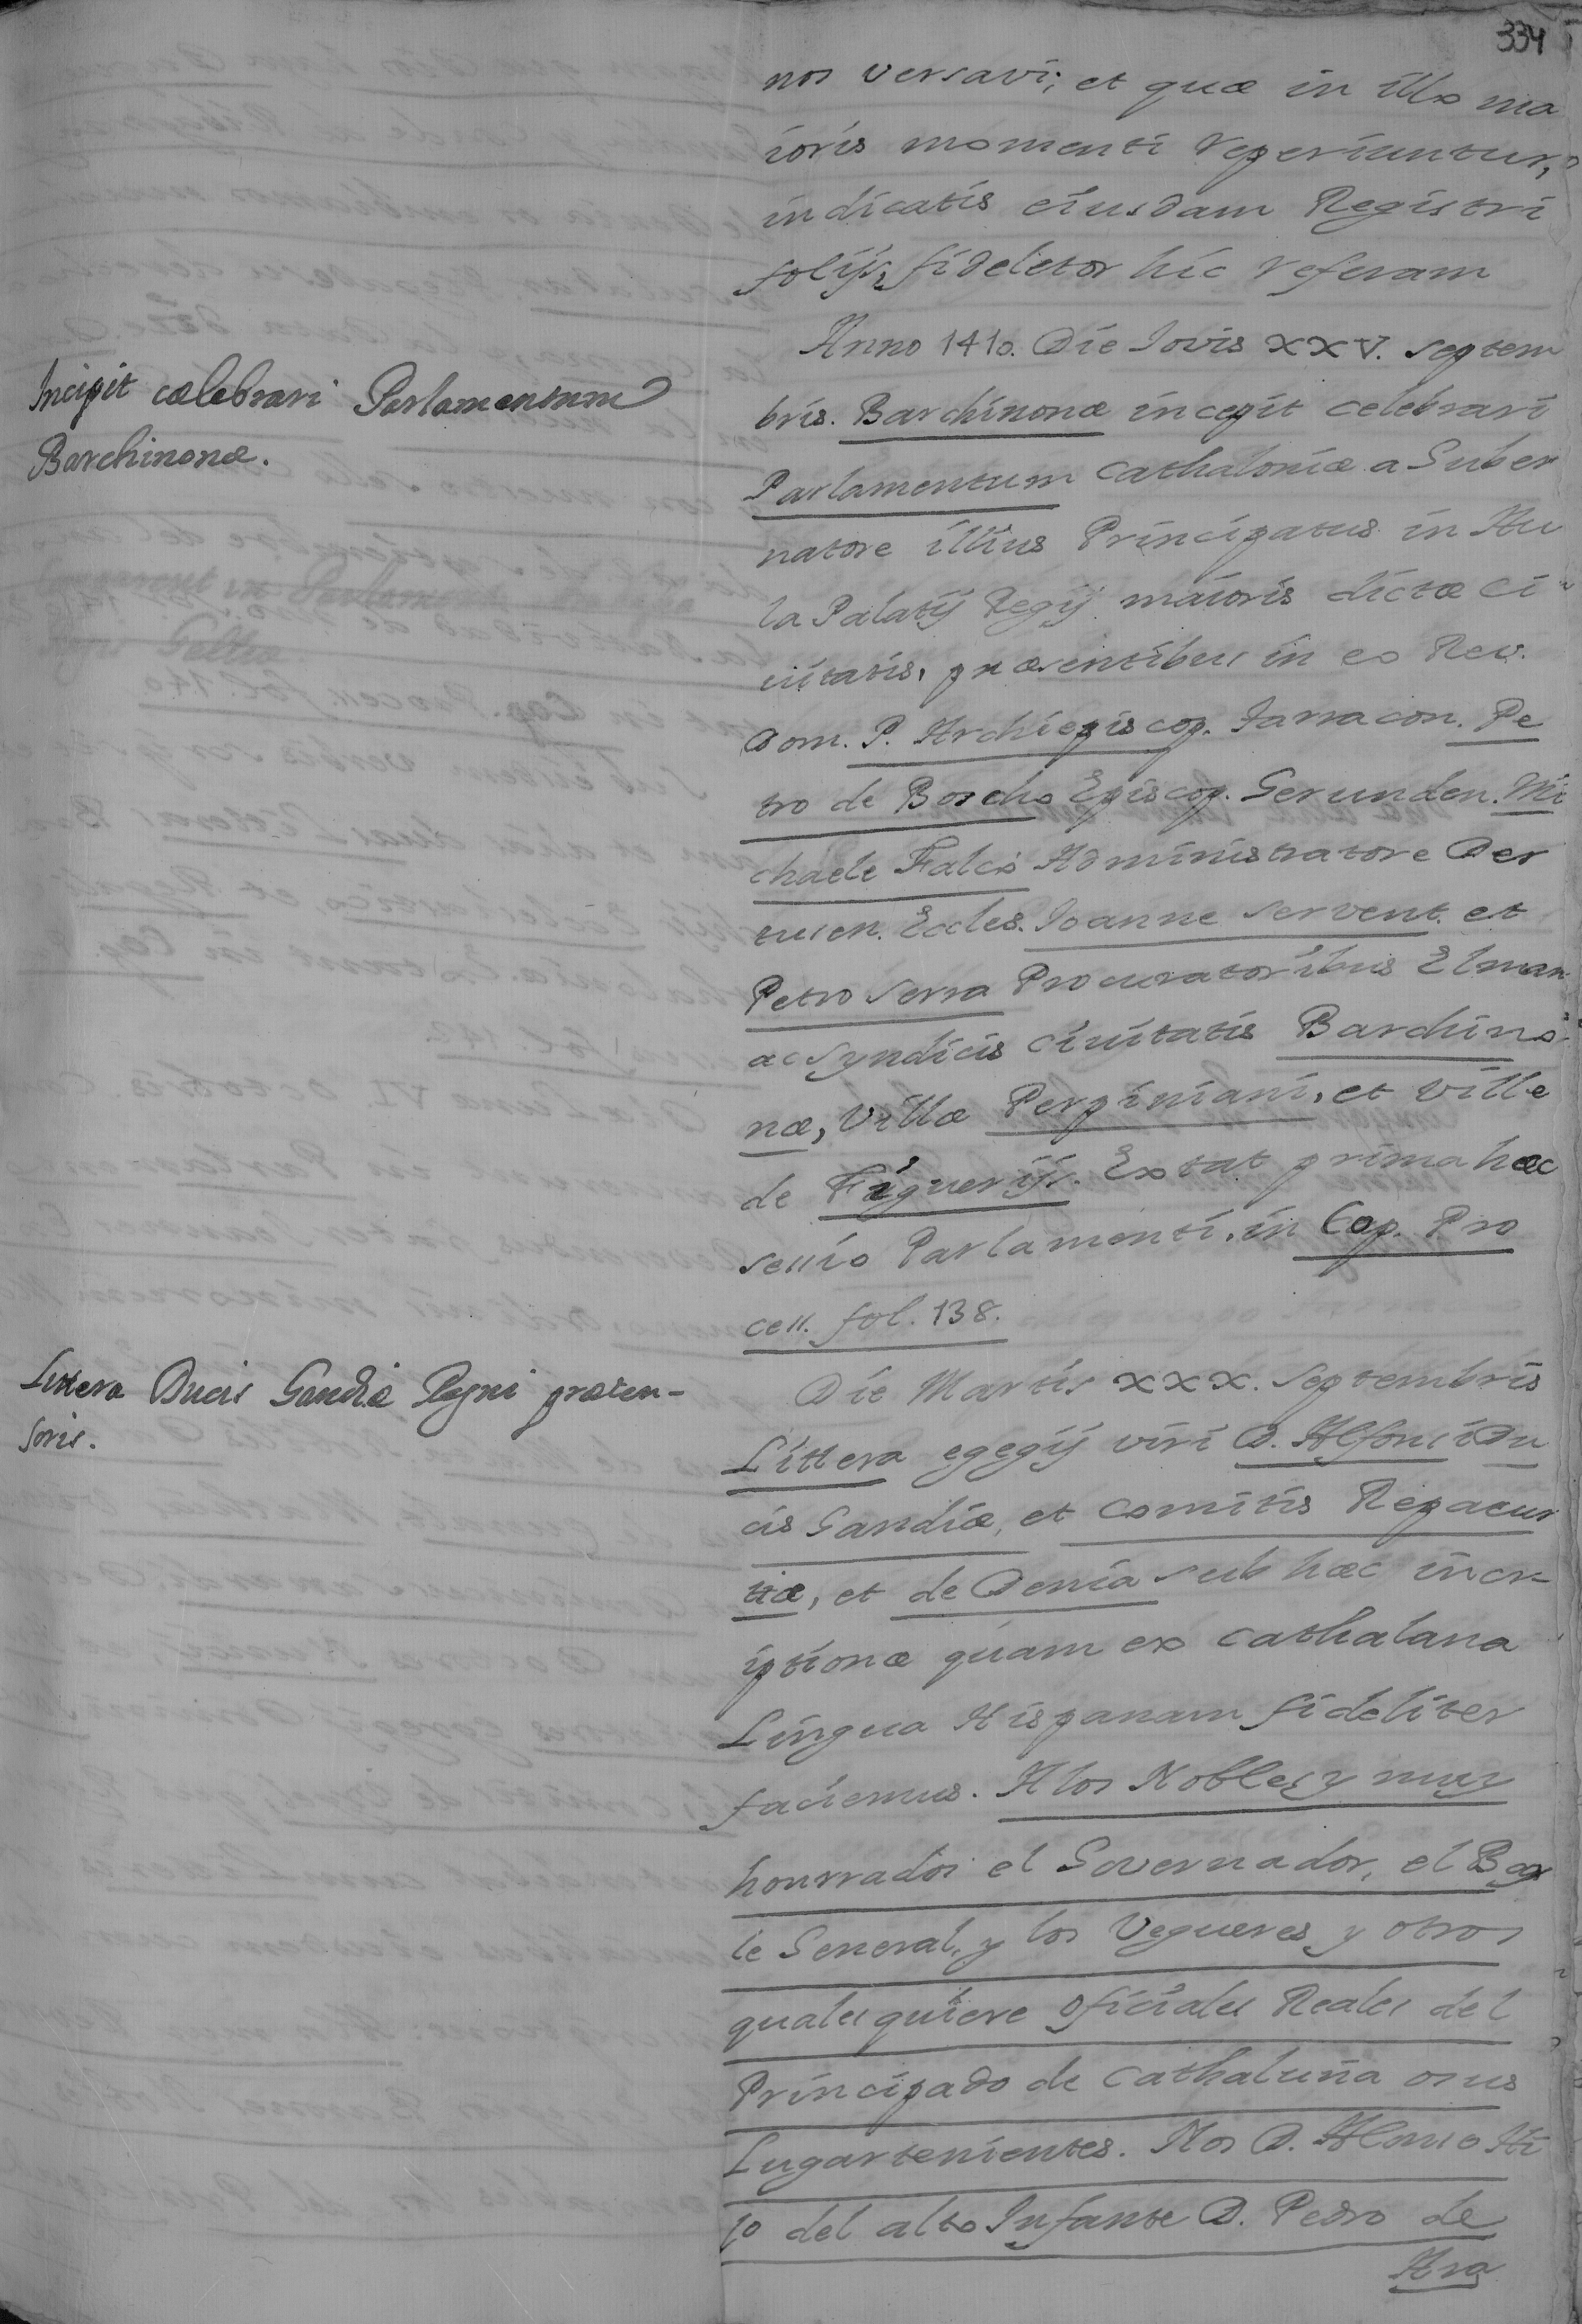 334
nos versavi; et quæ in illo ma
ioris momenti reperiuntur,
indicatis eiusdam Registri
folijs, fideletor hic referam
Anno 1410. Die Iovis XXV. septem
Incipit celebrari Parlamentum
Barchinonæ.
bris. Barchinonæ incepit celebrari
Parlamentum Cathaloniæ a Guber
natore illius Principatus in Au
la Palatij Regij maioris dictæ Ci
uitatis, præsentibus in eo Rev.
Dom. P. Archiepiscop. Tarracon. Pe
tro de Boscho Episcop. Gerunden. Mi
chaele Falco Administratore Der
tusen. Eccles. Ioanne servent. et
Petro Serra Procuratoribus Elman
ac Syndicis Ciuitatis Barchino
næ, Villæ Perpiniani, et Ville
de Figuerijs. Extat prima hæc
sessio Parlamenti, in Cop. Pro
cess. fol. 138.
Littera Ducis Gandiæ Regni præten-
soris.
Die Martis XXX. Septembris
Littera egegij viri D. Alfonsi Du
cis Gandiæ, et Comitis Repacur
tiæ, et de Denia sub hac incr-
iptionæ quam ex Cathalana
Lingua Hispanam fideliter
faciemus. A los Nobles y muy
honrrados el Governador, el Bay
le General, y los Vegueres y otros
quales quiere oficiales Reales del
Principado de Cathaluña osus
Lugartenientes. Nos D. Alonso Hi
jo del alto Infante D. Pedro de
Ara